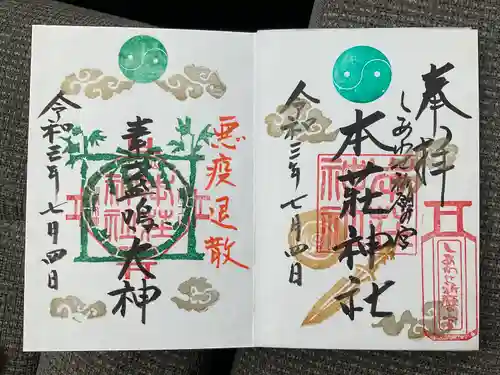 奉拝
しあわせ祈願の宮
本荘神社
令和三年七月四日
悪疫退散
素盞鳴大神
令和三年七月四日